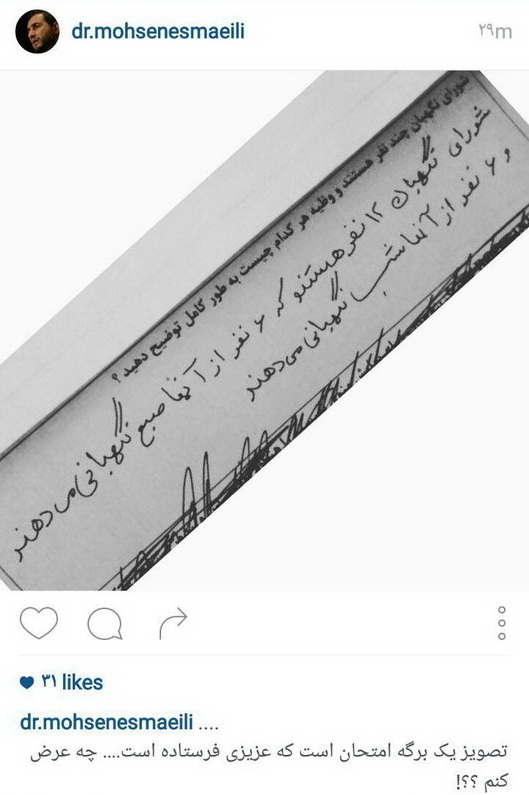 dr.mohsenesmaeili
۲۹m
شورای نگهبان چند نفر هستند و وظیه هر کدام چیست به طور کامل توضیح دهید ؟
شورای نگهبان ۱۲ نفر هستند که ۶ نفر از آنها صبح نگهبانی می دهند
و ۶ نفر از آنها شب نگهبانی می دهند
۳۱ likes
dr.mohsenesmaeili ....
تصویز یک برگه امتحان است که عزیزی فرستاده است.... چه عرض
کنم ؟؟!